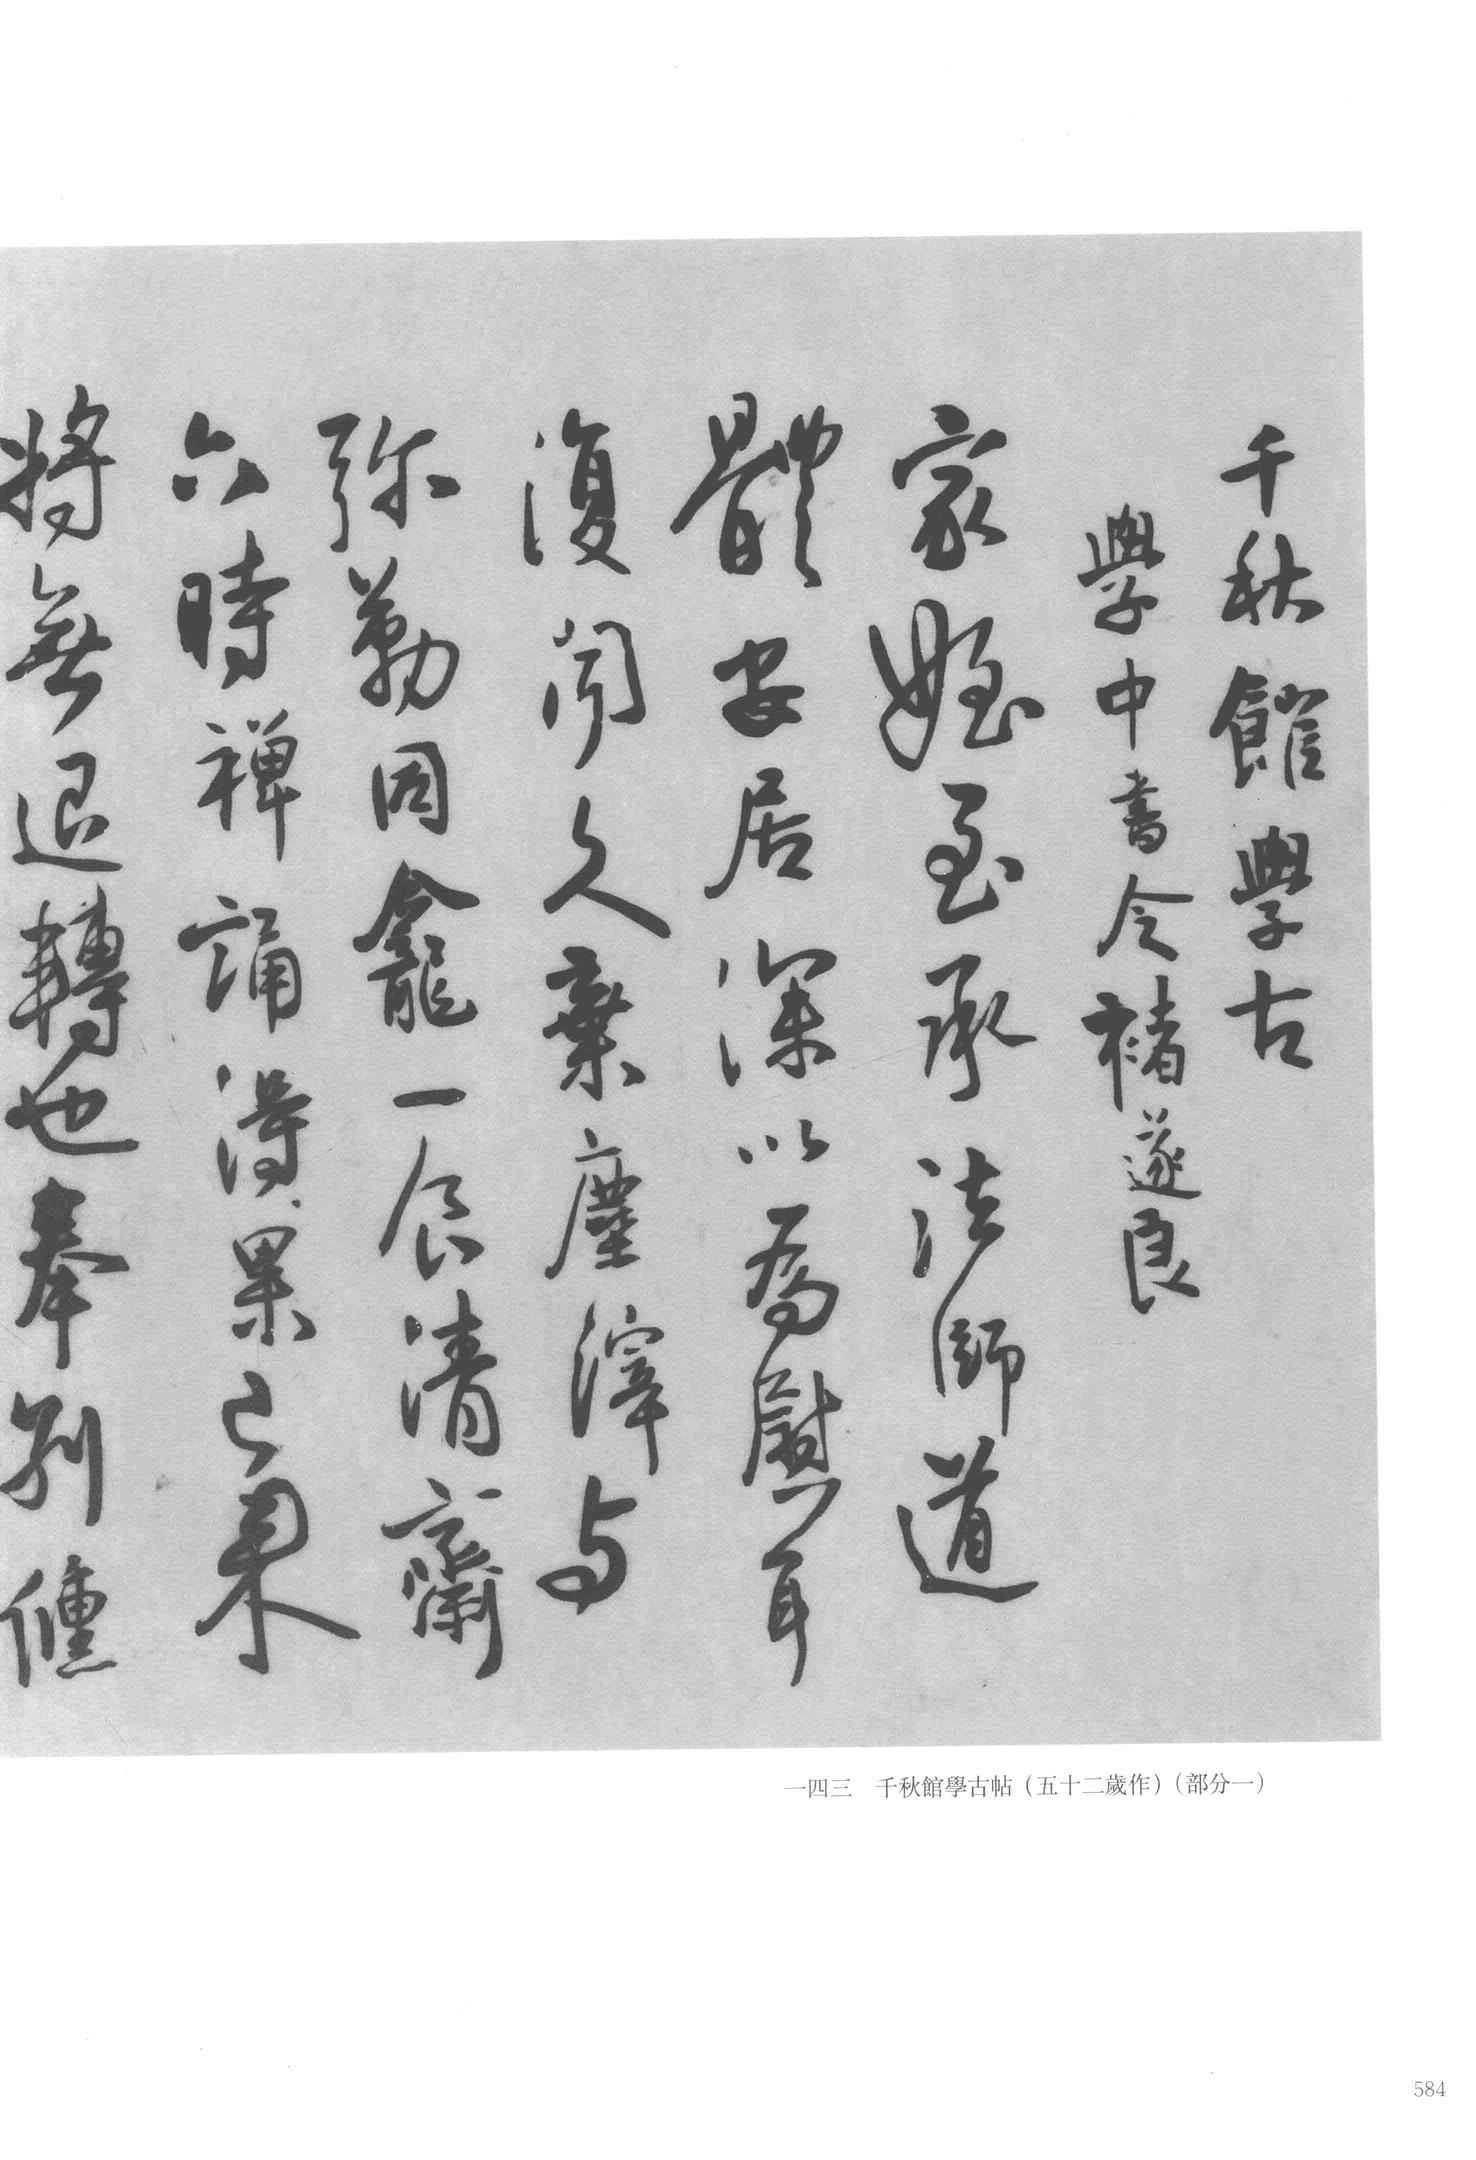 千秋館學古
學中書令褚遂良
家姪至承法師道
體安居深以為慰耳
復聞久棄塵滓与
弥勒同龕一食清齋
六時禪誦得果已來
將無退轉也奉別倏
一四三　千秋館學古帖（五十二歲作）（部分一）
584